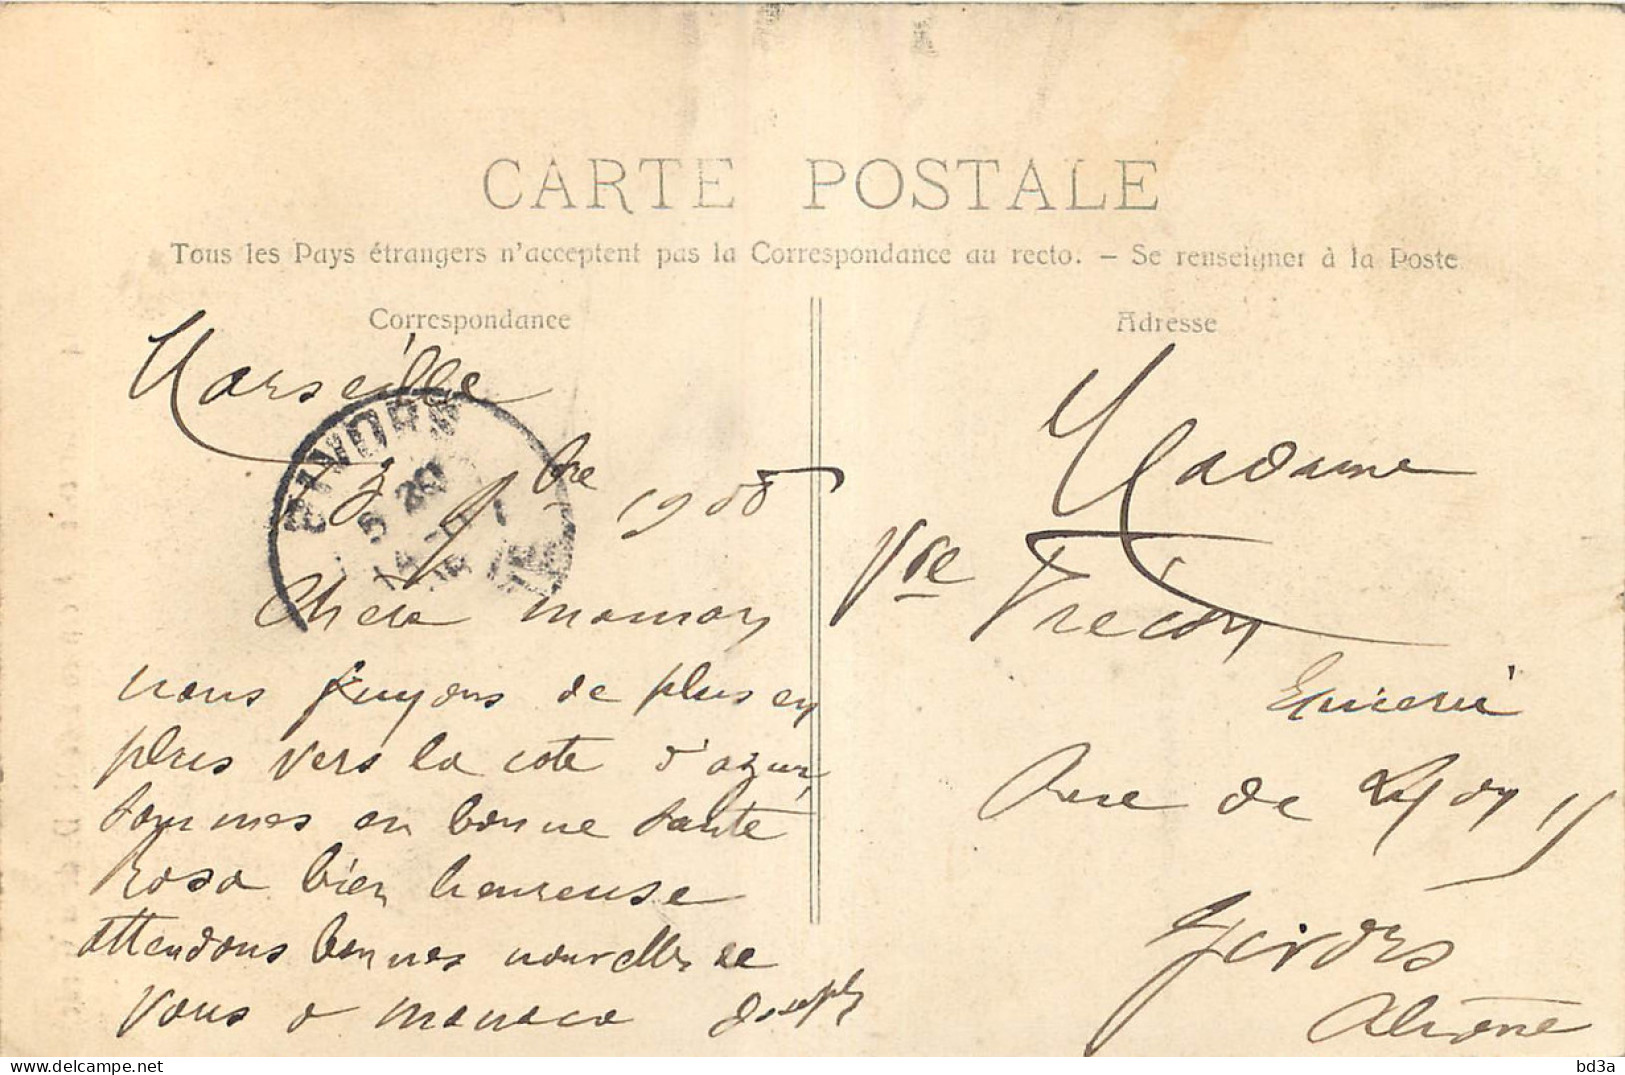 CARTE POSTALE
Tous les Pays étrangers n'acceptent pas la Correspondance au recto. – Se renseigner à la Poste
Correspondance
Marseille
3 9bre 1908
Chère maman
nous fuyons de plus en
plus vers la cote d'azur,
sommes en bonne santé
Rosa bien heureuse
attendons bonnes nouvelles de
vous a monaco Joseph
GIVORS
5 20
Adresse
Madame
Vve Frécon
Epicerie
Rue de Lyon
Givors
Rhône
bd3a